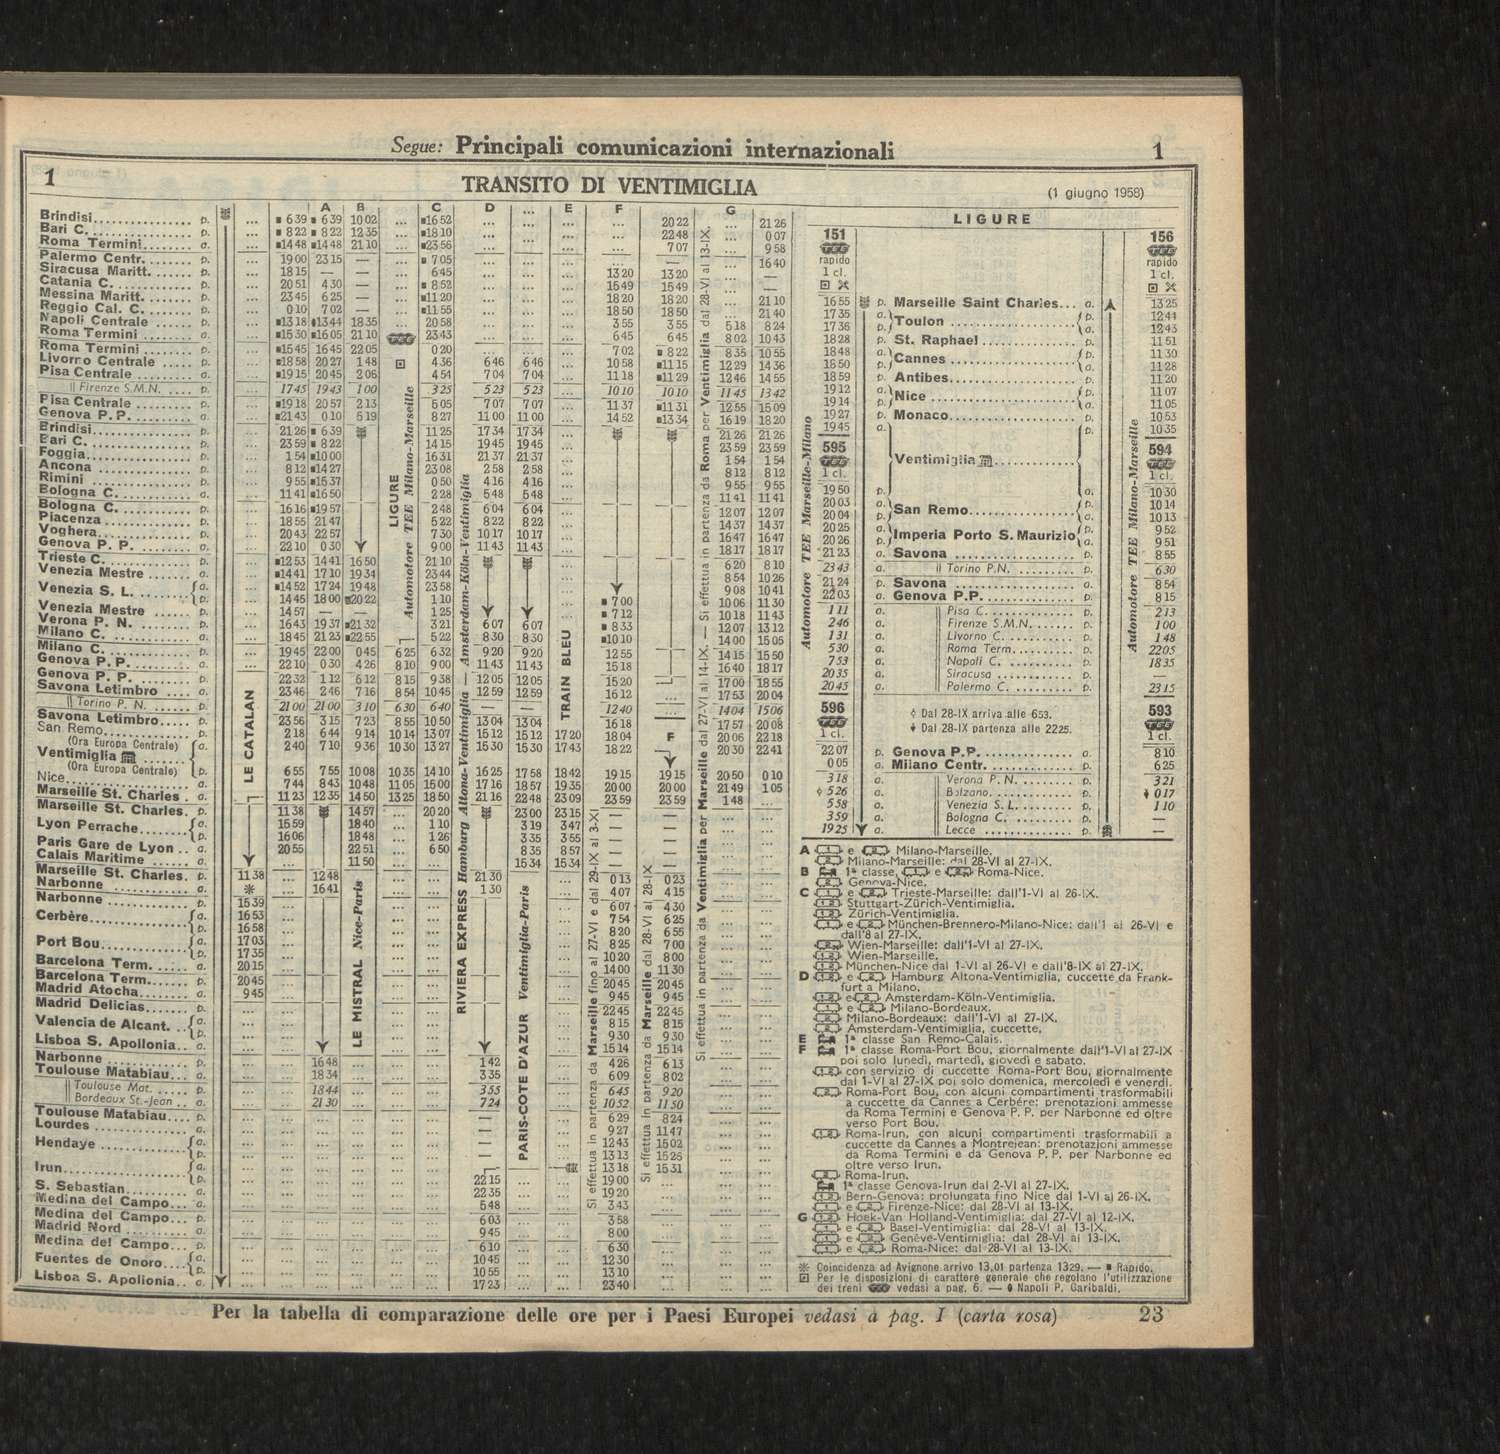 Segue: Principali comunicazioni internazionali 1
1 TRANSITO DI VENTIMIGLIA (1 giugno 1958)
A B C D ... E F G
Brindisi p. ... 6 39 6 39 10 02 ... 16 52 ... ... ... ... 20 22 ... 21 26
Bari C. p. ... 8 22 8 22 12 35 ... 18 10 ... ... ... ... 22 48 ... 0 07
Roma Termini a. ... 14 48 14 48 21 10 ... 23 56 ... ... ... ... 7 07 ... 9 58
Palermo Centr. p. ... 19 00 23 15 — ... 7 05 ... ... ... ... — ... 16 40
Siracusa Maritt. p. ... 18 15 — — ... 6 45 ... ... ... 13 20 13 20 ... —
Catania C. p. ... 20 51 4 30 — ... 8 52 ... ... ... 15 49 15 49 ... —
Messina Maritt. p. ... 23 45 6 25 — ... 11 20 ... ... ... 18 20 18 20 ... 21 10
Reggio Cal. C. p. ... 0 10 7 02 — ... 11 55 ... ... ... 18 50 18 50 ... 21 40
Napoli Centrale p. ... 13 18 13 44 18 35 20 58 ... ... ... 3 55 3 55 5 18 8 24
Roma Termini a. ... 15 30 16 05 21 10 23 43 ... ... ... 6 45 6 45 8 02 10 43
Roma Termini p. ... 15 45 16 45 22 05 0 20 ... ... ... 7 02 8 22 8 35 10 55
Livorno Centrale p. ... 18 58 20 27 1 48 4 36 6 46 6 46 ... 10 58 11 15 12 29 14 36
Pisa Centrale a. ... 19 15 20 45 2 06 4 54 7 04 7 04 ... 11 18 11 29 12 46 14 55
Firenze S.M.N. p. ... 17 45 19 43 1 00 3 25 5 23 5 23 ... 10 10 10 10 11 45 13 42
Pisa Centrale p. ... 19 18 20 57 2 13 6 05 7 07 7 07 ... 11 37 11 31 12 55 15 09
Genova P. P. a. ... 21 43 0 10 5 19 8 27 11 00 11 00 ... 14 52 13 34 16 19 18 20
Brindisi p. 21 26 6 39 11 25 17 34 17 34 ... 21 26 21 26
Bari C. p. 23 59 8 22 14 15 19 45 19 45 ... 23 59 23 59
Foggia p. 1 54 10 00 16 31 21 37 21 37 ... 1 54 1 54
Ancona p. 8 12 14 27 23 08 2 58 2 58 ... 8 12 8 12
Rimini p. 9 55 15 37 0 50 4 16 4 16 ... 9 55 9 55
Bologna C. a. 11 41 16 50 2 28 5 48 5 48 ... 11 41 11 41
Bologna C. p. 16 16 19 57 2 48 6 04 6 04 ... 12 07 12 07
Piacenza p. 18 55 21 47 5 22 8 22 8 22 ... 14 37 14 37
Voghera p. 20 43 22 57 7 30 10 17 10 17 ... 16 47 16 47
Genova P. P. a. 22 10 0 30 9 00 11 43 11 43 ... 18 17 18 17
Trieste C. p. ... 12 53 14 41 16 50 21 10 ... 6 20 8 10
Venezia Mestre a. ... 14 41 17 10 19 34 23 44 ... 8 54 10 26
Venezia S. L. a. ... 14 52 17 24 19 48 23 58 ... 9 08 10 41
p. 14 45 18 00 20 22 1 10 7 00 10 06 11 30
Venezia Mestre p. 14 57 — — 1 25 7 12 10 18 11 43
Verona P. N. p. 16 43 19 37 21 32 3 21 6 07 6 07 8 33 12 07 13 12
Milano C. a. 18 45 21 23 22 55 5 22 8 30 8 30 10 10 14 00 15 05
Milano C. p. ... 19 45 22 00 0 45 6 25 6 32 9 20 9 20 12 55 14 15 15 50
Genova P. P. a. ... 22 10 0 30 4 26 8 10 9 00 11 43 11 43 15 18 16 40 18 17
Genova P. P. p. 22 32 1 12 6 12 8 15 9 38 12 05 12 05 15 20 17 00 18 55
Savona Letimbro a. 23 46 2 46 7 16 8 54 10 45 12 59 12 59 16 12 17 53 20 04
Torino P. N. p. 21 00 21 00 3 10 6 30 6 40 — — 12 40 ... 14 04 15 06
Savona Letimbro p. 23 56 3 15 7 23 8 55 10 50 13 04 13 04 16 18 17 57 20 08
San Remo p. 2 18 6 44 9 14 10 14 13 07 15 12 15 12 17 20 18 04 F 20 06 22 18
(Ora Europa Centrale) a. 2 40 7 10 9 36 10 30 13 27 15 30 15 30 17 43 18 22 20 30 22 41
Ventimiglia
(Ora Europa Centrale) p. 6 55 7 55 10 08 10 35 14 10 16 25 17 58 18 42 19 15 19 15 20 50 0 10
Nice a. 7 44 8 43 10 48 11 05 15 00 17 16 18 57 19 35 20 00 20 00 21 49 1 05
Marseille St. Charles a. 11 23 12 35 14 50 13 25 18 50 21 16 22 48 23 09 23 59 23 59 1 48 ...
Marseille St. Charles. p. 11 38 14 57 20 20 23 00 23 15 — —
Lyon Perrache a. 15 59 18 40 1 10 3 19 3 47 — —
p. 16 06 18 48 1 26 3 35 3 55 — —
Paris Gare de Lyon a. 20 55 22 51 6 50 8 35 8 57 — —
Calais Maritime a. 11 50 15 34 15 34 — —
Marseille St. Charles. p. 11 38 ... 12 48 21 30 ... 0 13 0 23
Narbonne a. ※ ... 16 41 1 30 ... 4 07 4 15
Narbonne p. 15 39 ... 6 07 4 30
Cerbère a. 16 53 ... 7 54 6 25
p. 16 58 ... 8 20 6 55
Port Bou a. 17 03 ... 8 25 7 00
p. 17 35 ... 10 20 8 00
Barcelona Term. a. 20 15 ... 14 00 11 30
Barcelona Term. p. 20 45 ... 20 45 20 45
Madrid Atocha a. 9 45 ... 9 45 9 45
Madrid Delicias p. ... 22 45 22 45
Valencia de Alcant. a. ... 8 15 8 15
p. ... 9 30 9 30
Lisboa S. Apollonia a. ... 15 14 15 14
Narbonne p. ... 16 48 1 42 ... 4 26 6 13
Toulouse Matabiau a. ... 18 34 3 35 ... 6 09 8 02
Toulouse Mat. p. ... 18 44 3 55 ... 6 45 9 20
Bordeaux St.-Jean a. ... 21 30 7 24 ... 10 52 11 50
Toulouse Matabiau p. ... — 6 29 8 24
Lourdes a. ... — 9 27 11 47
Hendaye a. ... — 12 43 15 02
p. ... — 13 13 15 26
Irun a. ... 13 18 15 31
p. ... 22 15 19 00
S. Sebastian a. ... 22 35 19 20
Medina del Campo a. ... 5 48 3 43
Medina del Campo p. ... 6 03 3 58
Madrid Nord a. ... 9 45 8 00
Medina del Campo p. ... 6 10 6 30
Fuentes de Onoro a. ... 10 45 12 30
p. ... 10 55 13 10
Lisboa S. Apollonia a. ... 17 23 23 40
LE CATALAN
LE MISTRAL Nice-Paris
LIGURE
Automotore TEE Milano-Marseille
RIVIERA EXPRESS Hamburg Altona-Ventimiglia — Amsterdam-Köln-Ventimiglia
PARIS-COTE D'AZUR Ventimiglia-Paris
TRAIN BLEU
Si effettua in partenza da Marseille fino al 27-VI e dal 29-IX al 3-XI
Si effettua in partenza da Marseille dal 28-VI al 28-IX
Si effettua in partenza da Ventimiglia per Marseille dal 27-VI al 14-IX. — Si effettua in partenza da Roma per Ventimiglia dal 28-VI al 13-IX.
LIGURE
151 156
TEE TEE
rapido rapido
1 cl. 1 cl.
16 55 p. Marseille Saint Charles a. 13 25
17 35 a. Toulon p. 12 44
17 36 p. a. 12 43
18 28 p. St. Raphael p. 11 51
18 48 a. Cannes p. 11 30
18 50 p. a. 11 28
18 59 p. Antibes p. 11 20
19 12 a. Nice p. 11 07
19 14 p. a. 11 05
19 27 p. Monaco p. 10 53
19 45 a. p. 10 35
595 Ventimiglia 594
TEE TEE
1 cl. 1 cl.
19 50 p. a. 10 30
20 03 a. San Remo p. 10 14
20 04 p. a. 10 13
20 25 a. Imperia Porto S. Maurizio p. 9 52
20 26 p. a. 9 51
21 23 a. Savona p. 8 55
23 43 a. Torino P.N. p. 6 30
21 24 p. Savona a. 8 54
22 03 a. Genova P.P. p. 8 15
1 11 a. Pisa C. p. 2 13
2 46 a. Firenze S.M.N. p. 1 00
1 31 a. Livorno C. p. 1 48
5 30 a. Roma Term. p. 22 05
7 53 a. Napoli C. p. 18 35
20 35 a. Siracusa p. —
20 45 a. Palermo C. p. 23 15
596 Dal 28-IX arriva alle 653. 593
TEE Dal 28-IX partenza alle 2225. TEE
1 cl. 1 cl.
22 07 p. Genova P.P. a. 8 10
0 05 a. Milano Centr. p. 6 25
3 18 a. Verona P. N. p. 3 21
5 26 a. Bolzano p. 0 17
5 58 a. Venezia S. L. p. 1 10
3 59 a. Bologna C. p. —
19 25 a. Lecce p. —
Automotore TEE Marseille-Milano
Automotore TEE Milano-Marseille
A e Milano-Marseille.
Milano-Marseille: dal 28-VI al 27-IX.
B 1ª classe, e Roma-Nice.
Genova-Nice.
C e Trieste-Marseille: dall'1-VI al 26-IX.
Stuttgart-Zürich-Ventimiglia.
Zürich-Ventimiglia.
e München-Brennero-Milano-Nice: dall'1 al 26-VI e
dall'8 al 27-IX.
Wien-Marseille: dall'1-VI al 27-IX.
Wien-Marseille.
München-Nice dal 1-VI al 26-VI e dall'8-IX al 27-IX.
D e Hamburg Altona-Ventimiglia, cuccette da Frank-
furt a Milano.
e Amsterdam-Köln-Ventimiglia.
e Milano-Bordeaux.
Milano-Bordeaux: dall'1-VI al 27-IX.
Amsterdam-Ventimiglia, cuccette.
E 1ª classe San Remo-Calais.
F 1ª classe Roma-Port Bou, giornalmente dall'1-VI al 27-IX
poi solo lunedì, martedì, giovedì e sabato.
con servizio di cuccette Roma-Port Bou, giornalmente
dal 1-VI al 27-IX poi solo domenica, mercoledì e venerdì.
Roma-Port Bou, con alcuni compartimenti trasformabili
a cuccette da Cannes a Cerbére: prenotazioni ammesse
da Roma Termini e Genova P. P. per Narbonne ed oltre
verso Port Bou.
Roma-Irun, con alcuni compartimenti trasformabili a
cuccette da Cannes a Montrejean: prenotazioni ammesse
da Roma Termini e da Genova P. P. per Narbonne ed
oltre verso Irun.
Roma-Irun.
1ª classe Genova-Irun dal 2-VI al 27-IX.
Bern-Genova: prolungata fino Nice dal 1-VI al 26-IX.
e Firenze-Nice: dal 28-VI al 13-IX.
G Hoek-Van Holland-Ventimiglia: dal 27-VI al 12-IX.
e Basel-Ventimiglia: dal 28-VI al 13-IX.
e Genève-Ventimiglia: dal 28-VI al 13-IX.
e Roma-Nice: dal 28-VI al 13-IX.
※ Coincidenza ad Avignone arrivo 13,01 partenza 1329. — ■ Rapido.
Per le disposizioni di carattere generale che regolano l'utilizzazione
dei treni TEE vedasi a pag. 6. — Napoli P. Garibaldi.
Per la tabella di comparazione delle ore per i Paesi Europei vedasi a pag. I (carta rosa) 23